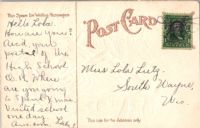 This Space for Writing Messages
POST CARD
Hello Lola.
How are you?
Recd. your
postal of the
High School
O.K. Where
are you going
to spend xmas
visited school
one day.
Ans. soon.
Miss Lola Lutz,
South Wayne,
Wis.
This side for the Address only.